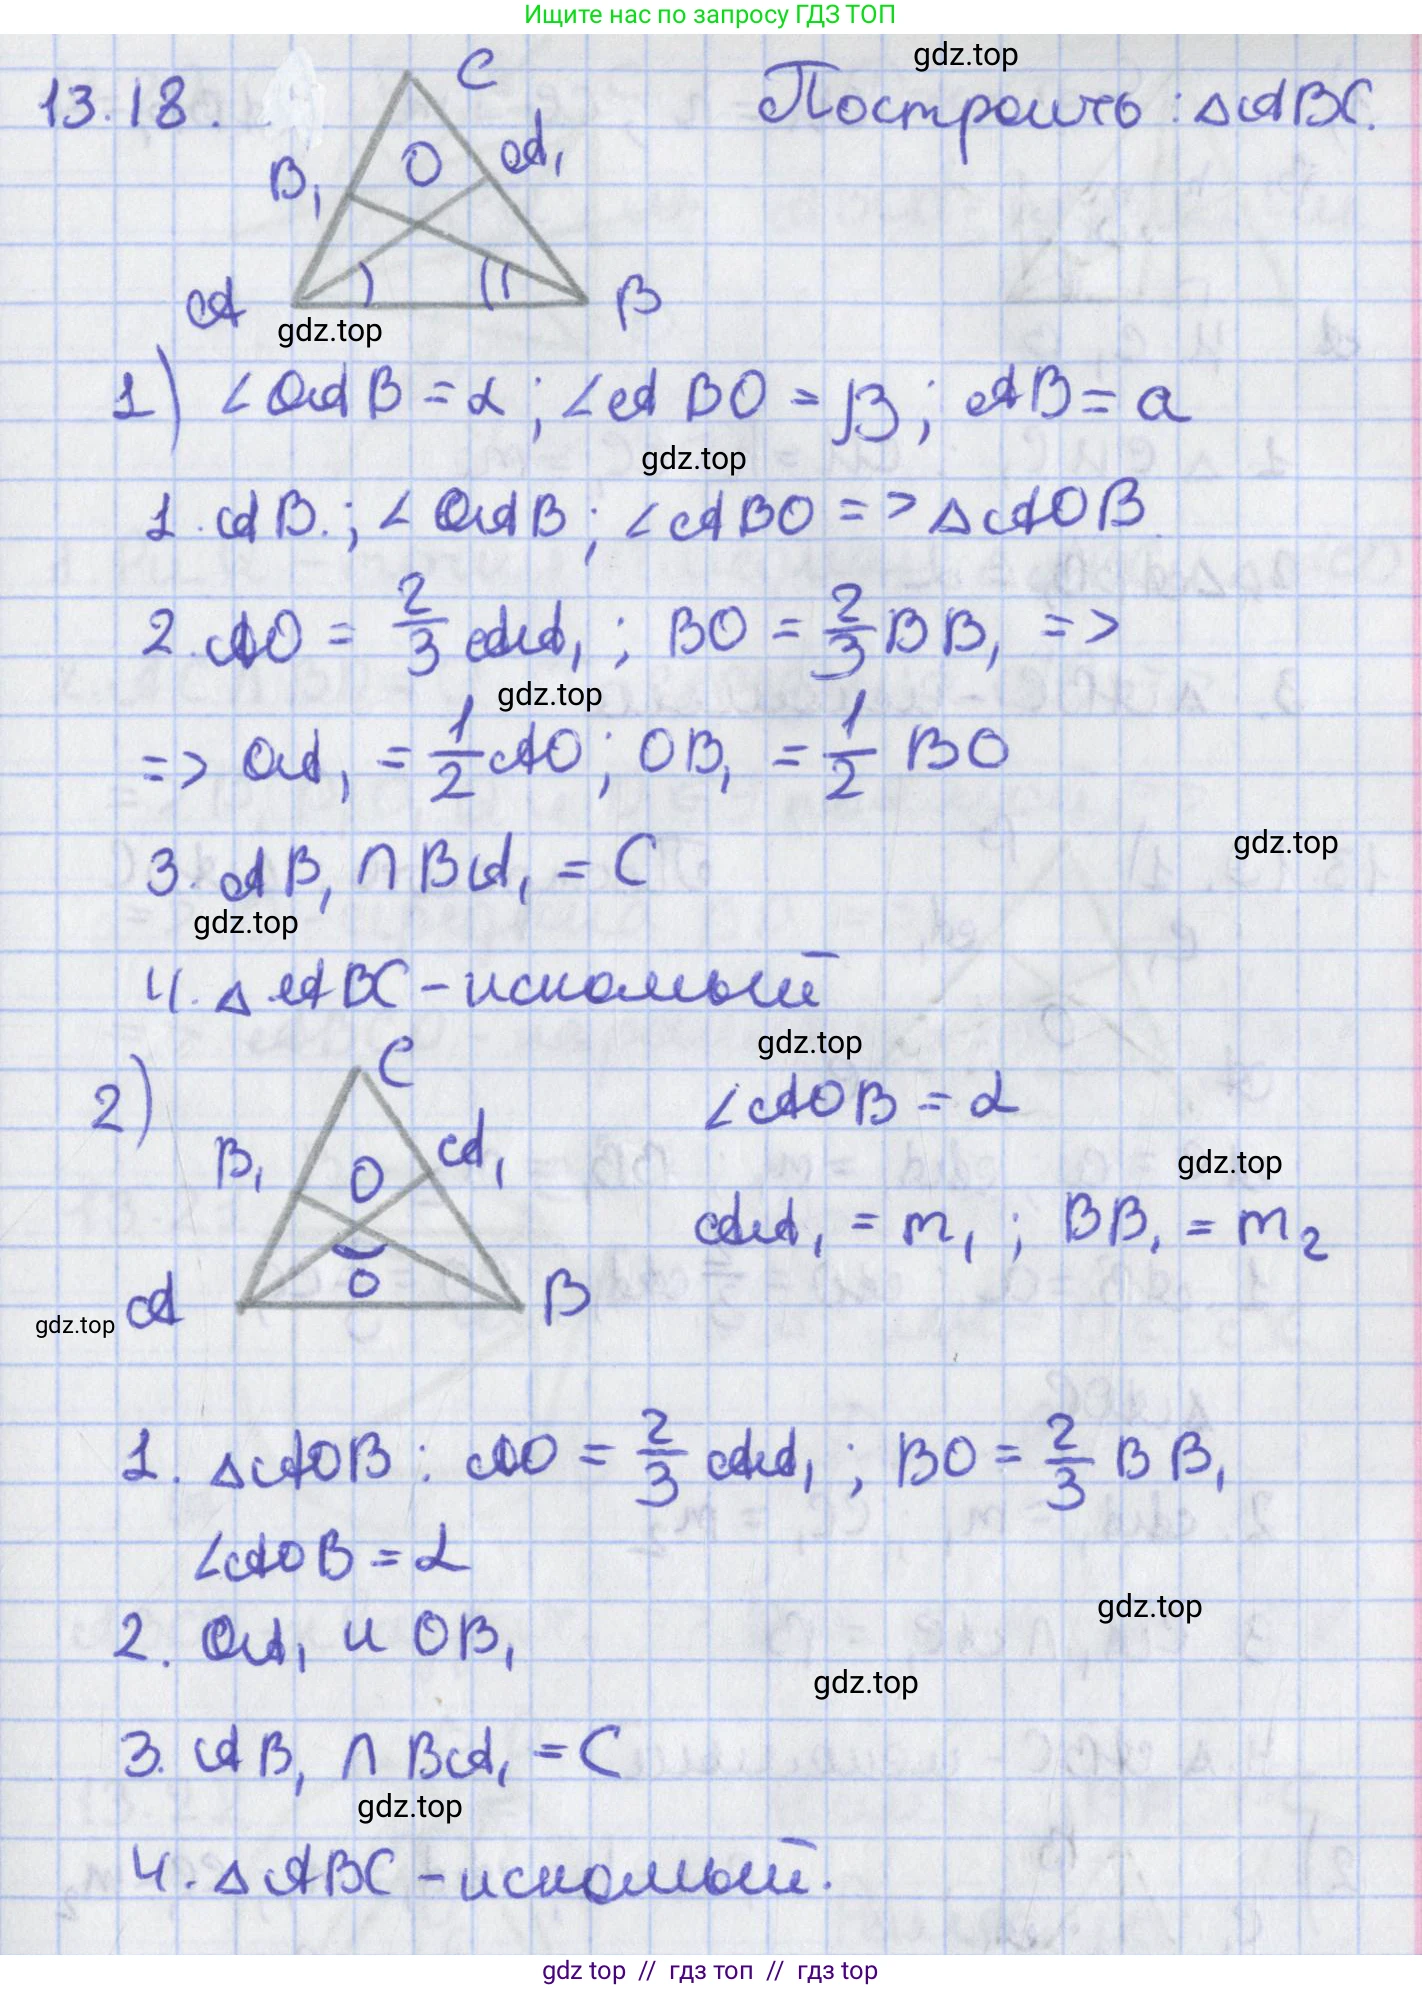 Ищите нас по запросу ГДЗ ТОП
gdz.top
13.18.
C
Построить: △ABC.
B₁
O
A₁
A
B
gdz.top
1) ∠OAB = α; ∠ABO = β; AB = a
gdz.top
1. AB.; ∠OAB; ∠ABO => △AOB.
2. AO = 2/3 AA₁; BO = 2/3 BB₁ =>
gdz.top
=> OA₁ = 1/2 AO; OB₁ = 1/2 BO
gdz.top
3. AB₁ ∩ BA₁ = C
gdz.top
4. △ABC - искомый
gdz.top
2)
C
∠AOB = α
B₁
O
A₁
gdz.top
AA₁ = m₁; BB₁ = m₂
O
A
B
gdz.top
1. △AOB: AO = 2/3 AA₁; BO = 2/3 BB₁
∠AOB = α
gdz.top
2. OA₁ и OB₁
gdz.top
3. AB₁ ∩ BA₁ = C
gdz.top
4. △ABC - искомый.
gdz top // гдз топ // гдз top